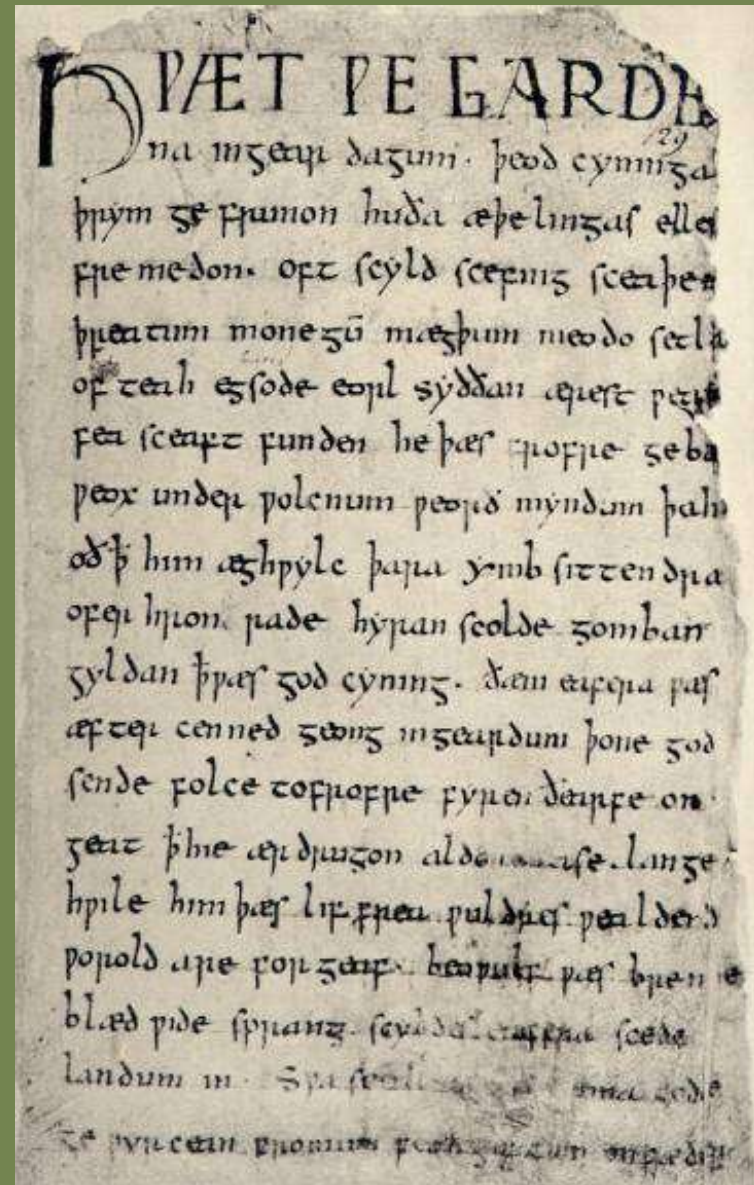 HǷÆT ǷE GARDE
129
na ingear dagum. þeod cyninga
þrym ge frunon huða æþelingas elle
fre medon. oft scyld scefing sceaþe
þreatum monegū mægþum meodo setla
of teah egsode eorl syððan ærest ƿear
fea sceaft funden he þæs frofre geba
ƿeox under ƿolcnum ƿeorð myndum þah
oð ꝥ him æghƿylc þara ymb sittendra
ofer hron rade hyran scolde gomban
gyldan ꝥƿæs god cyning. ðæm eafera ƿæs
æfter cenned geong ingeardum þone god
sende folce tofrofre fyren ðearfe on
geat ꝥhie ær drugon alde ase. lange
hƿile him þæs lif frea ƿuldres ƿealdend
ƿorold are for geaf. beoƿulf ƿæs breme
blæd ƿide sprang scyldes eafera scede
landum in. Sƿa sceal guma gode
ge ƿyrcean fromum feoh giftum